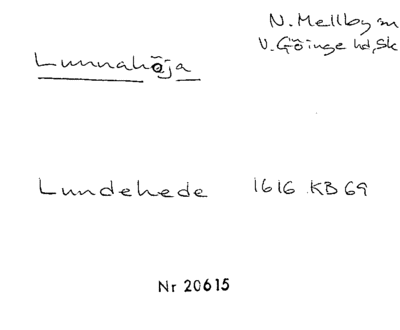 N. Mellby sn
V. Göinge hd, Sk
Lunnahöja
Lundehede 1616 KB 69
Nr 20615